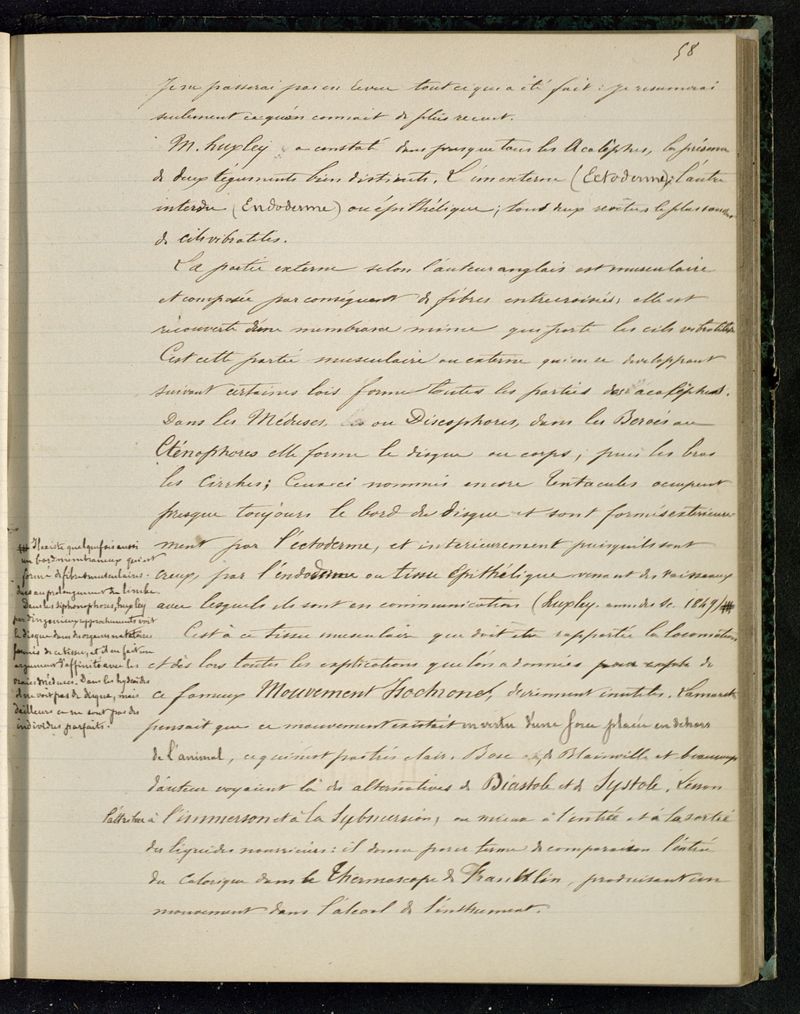 58
Je ne passerai pas en revue tout ce qui a été fait : je resumerai
seulement ce qu'on connait de plus recent.
M. Huxley a constaté dans presque tous les Acalèphes, la présence
de deux téguments bien distincts. L'un externe (Ectoderme); l'autre
interne (Endoderme) ou épithélique; tous deux revêtus le plus souvent
de cils vibratiles.
La partie externe selon l'auteur anglais est musculaire
et composée par conséquent de fibres entrecroisées, elle est
récouverte d'une membrane mince qui porte les cils vibratiles
C'est cette partie musculaire ou externe qui en se developpant
suivant certaines lois forme toutes les parties des acalèphes.
Dans les Méduses, ou Discophores, dans les Beroés ou
Cténophores elle forme le disque ou corps, puis les bras
les Cirrhes; Ceux-ci nommés encore Tentacules occupent
presque toujours le bord du disque et sont formés exterieure-
ment par l'ectoderme, et interieurement puisqu'ils sont
creux, par l'endoderme ou tissu épithélique venant des vaisseaux
avec lesquels ils sont en communication (Huxley. ann. des sc. 1849)
C'est à ce tissu musculaire que doit être rapportée la locomotion
et dès lors toutes les explications que l'on a données de
ce fameux Mouvement Isochrone, deviennent inutiles. Lamarck
pensait que ce mouvement existait en vertu d'une force placée en dehors
de l'animal, ce qui n'est pas très clair. Bosc de Blainville et beaucoup
d'auteur voyaient là des alternatives de Diastole et de Systole. Lesson
l'attribue à l'immerson et à la Submersion, ou mieux à l'entrée et à la sortie
des liquides nourriciers : il donne pour terme de comparaison l'entrée
du Calorique dans le Thermoscope de Franklin, produisant un
mouvement dans l'alcool de l'instrument.
Il existe quelquefois aussi
un bord membraneux qui est
formé de fibres musculaires
dues au prolongement du limbe.
Dans les siphonophores, huxley
par d'ingenieux rapprochements voit
le disque dans des organes natatoires
formés de ce tissu, et il en fait un
argument d'affinité avec les
vraies méduses. Dans les hydroides
on ne voit pas de disque, mais
d'ailleurs ce ne sont pas des
individus parfaits.